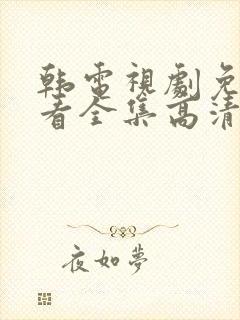 韩電視劇免
看全集高清
夜如夢